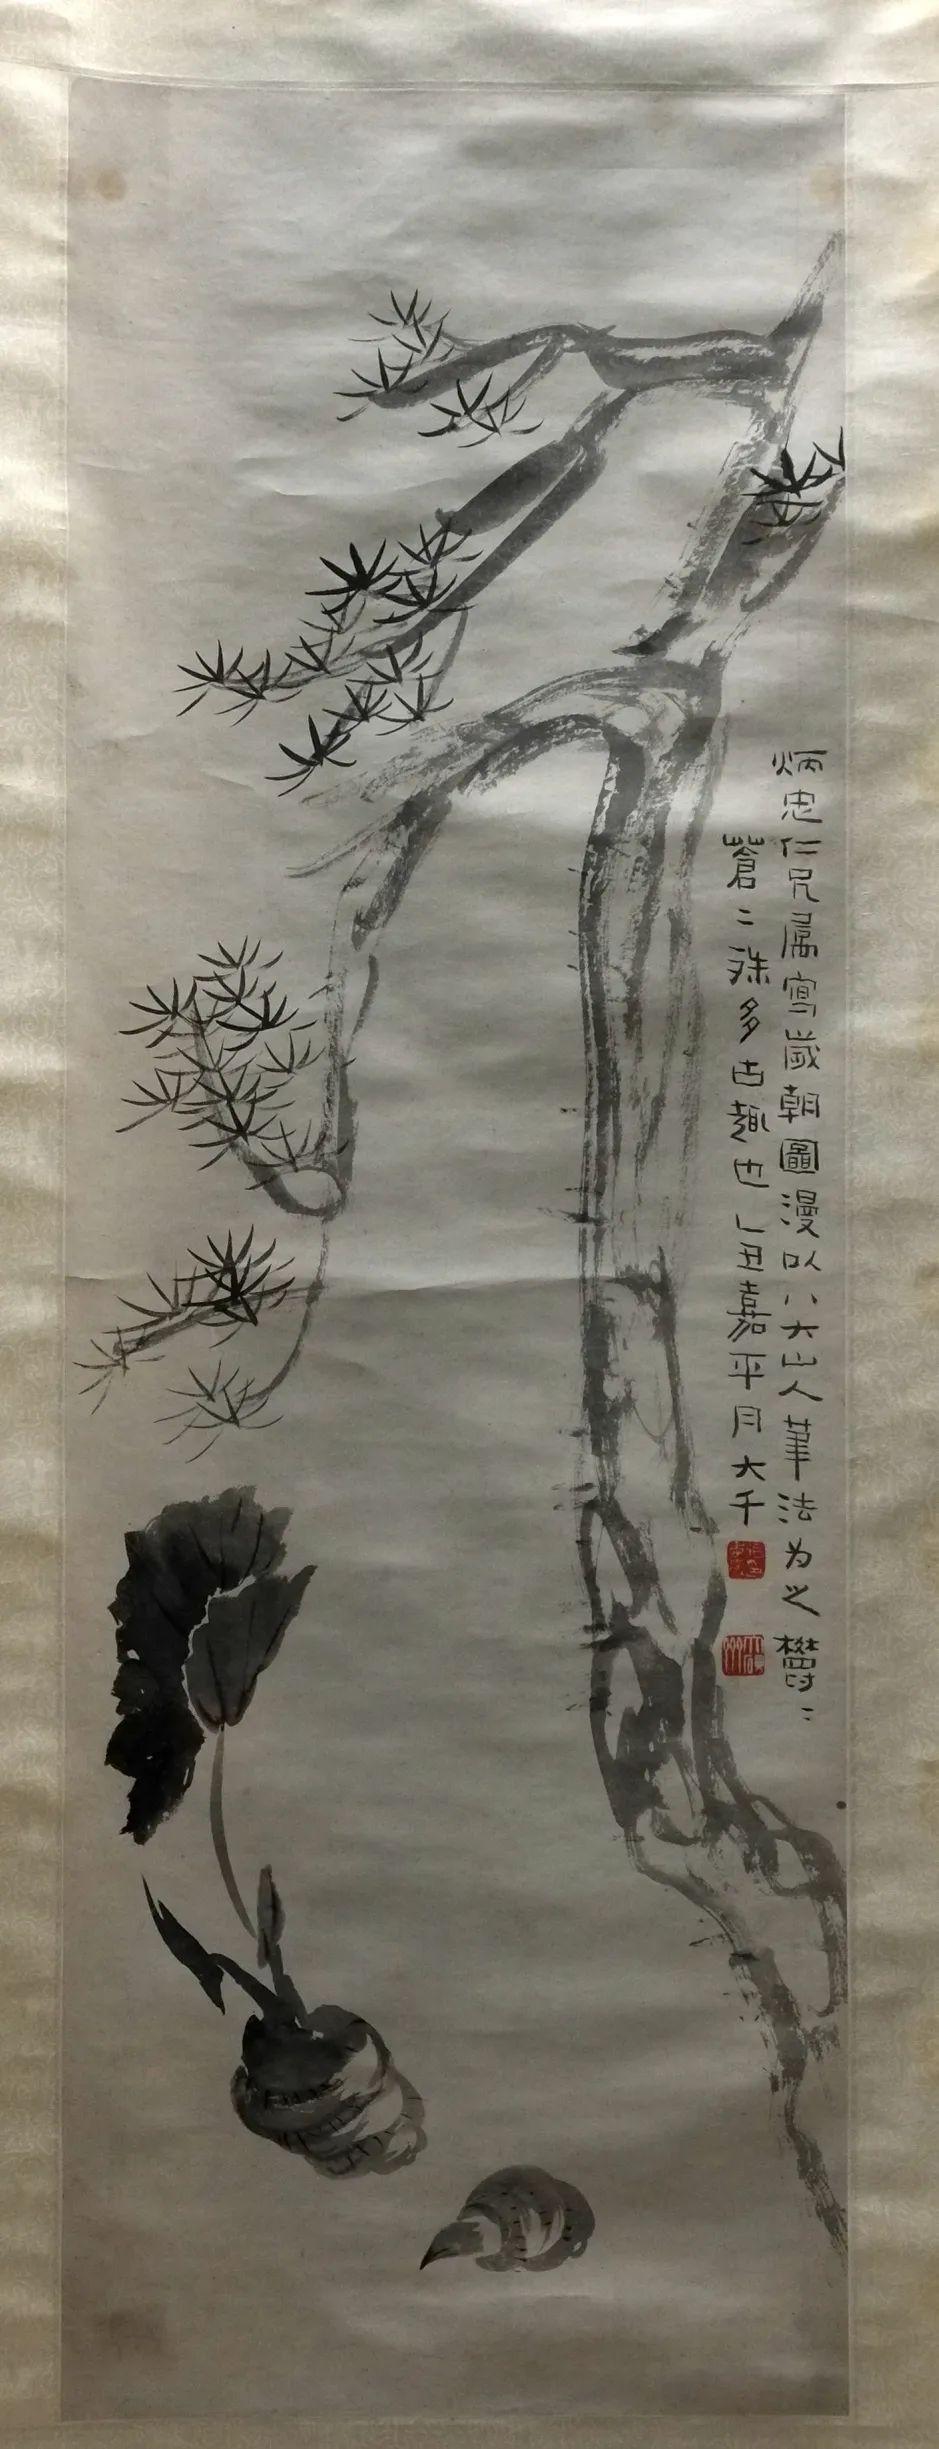 炳忠仁兄属寫歲朝圖漫以八大山人筆法为之欝〻
蒼〻殊多古趣也乙丑嘉平月大千